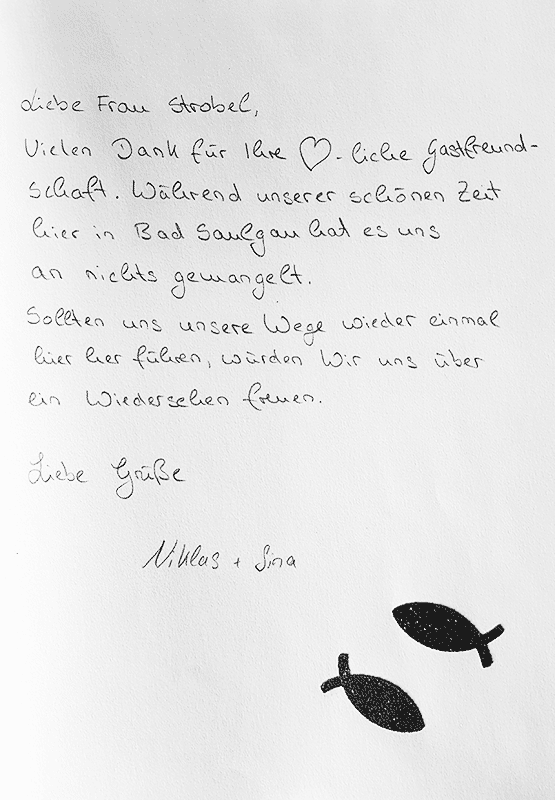 Liebe Frau Strobel,
Vielen Dank für Ihre ♡-liche Gastfreund-
schaft. Während unserer schönen Zeit
hier in Bad Saulgau hat es uns
an nichts gemangelt.
Sollten uns unsere Wege wieder einmal
hier her führen, würden Wir uns über
ein Wiedersehen freuen.
Liebe Grüße
Niklas + Sina